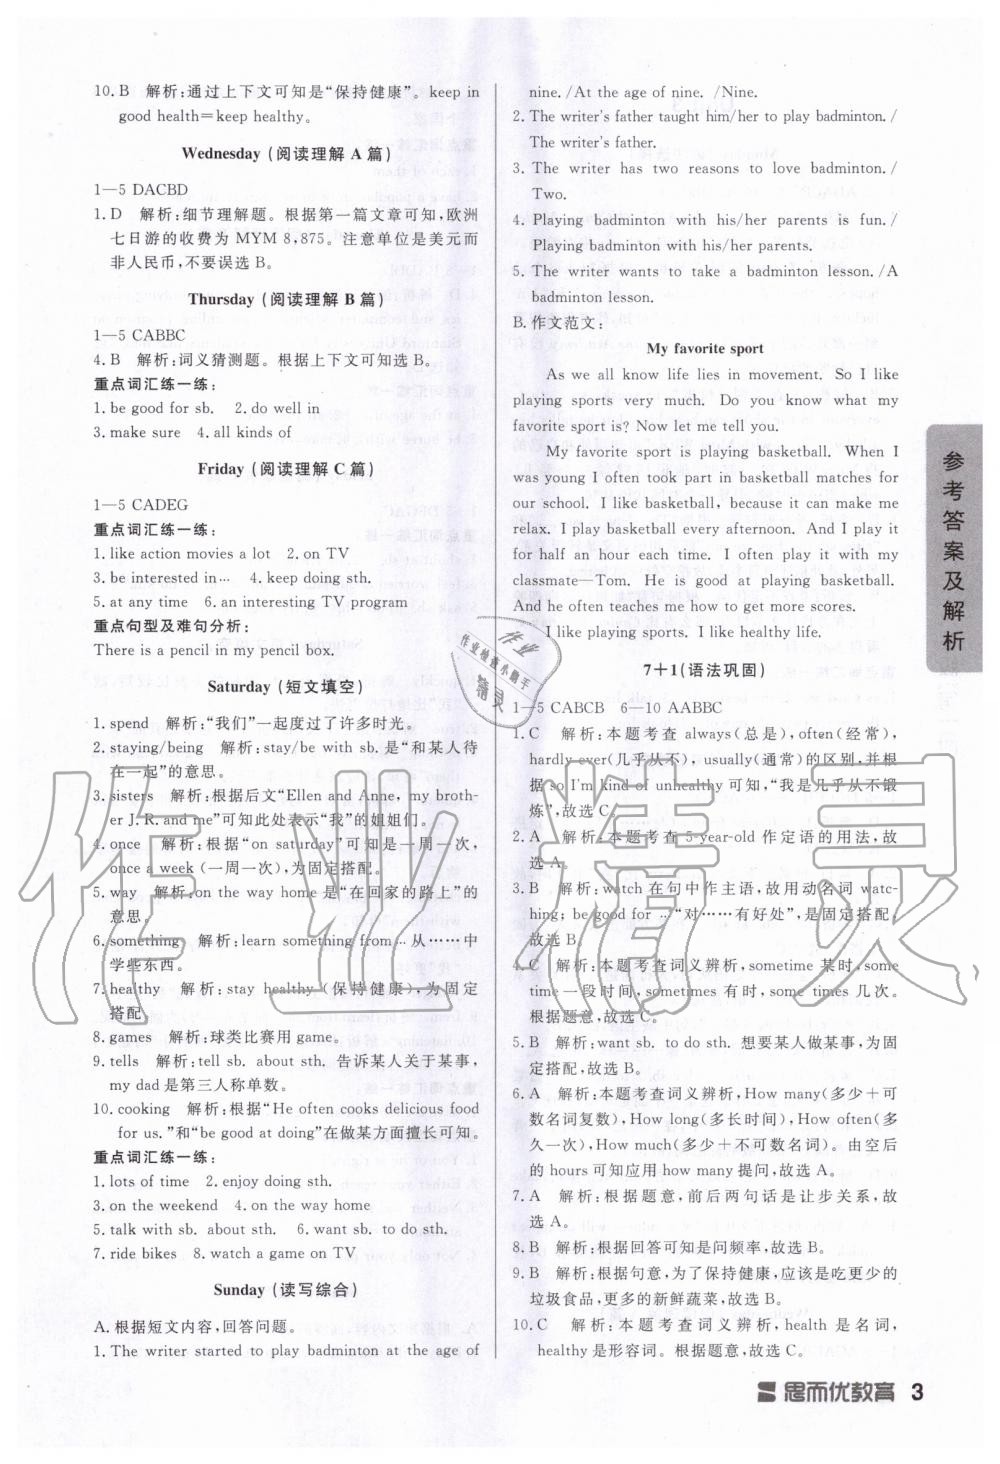 10. B　解析:通过上下文可知是“保持健康”。keep in
good health＝keep healthy。
Wednesday (阅读理解 A 篇)
1—5 DACBD
1. D　解析:细节理解题。根据第一篇文章可知,欧洲
七日游的收费为 MYM 8,875。注意单位是美元而
非人民币,不要误选 B。
Thursday (阅读理解 B 篇)
1—5 CABBC
4. B　解析:词义猜测题。根据上下文可知选 B。
重点词汇练一练:
1. be good for sb.　2. do well in
3. make sure　4. all kinds of
Friday (阅读理解 C 篇)
1—5 CADEG
重点词汇练一练:
1. like action movies a lot　2. on TV
3. be interested in…　4. keep doing sth.
5. at any time　6. an interesting TV program
重点句型及难句分析:
There is a pencil in my pencil box.
Saturday (短文填空)
1. spend　解析:“我们”一起度过了许多时光。
2. staying/being　解析:stay/be with sb. 是“和某人待
在一起”的意思。
3. sisters　解析:根据后文“Ellen and Anne, my broth-
er J. R. and me”可知此处表示“我”的姐姐们。
4. once　解析:根据“on saturday”可知是一周一次,
once a week (一周一次),为固定搭配。
5. way　解析:on the way home 是“在回家的路上”的
意思。
6. something　解析:learn something from … 从……中
学些东西。
7. healthy　解析:stay healthy (保持健康),为固定
搭配。
8. games　解析:球类比赛用 game。
9. tells　解析:tell sb. about sth. 告诉某人关于某事,
my dad 是第三人称单数。
10. cooking　解析:根据“He often cooks delicious food
for us.”和“be good at doing”在做某方面擅长可知。
重点词汇练一练:
1. lots of time　2. enjoy doing sth.
3. on the weekend　4. on the way home
5. talk with sb. about sth.　6. want sb. to do sth.
7. ride bikes　8. watch a game on TV
Sunday (读写综合)
A. 根据短文内容,回答问题。
1. The writer started to play badminton at the age of
nine. /At the age of nine. /Nine.
2. The writer's father taught him/her to play badminton. /
The writer's father.
3. The writer has two reasons to love badminton. /
Two.
4. Playing badminton with his/her parents is fun. /
Playing badminton with his/her parents.
5. The writer wants to take a badminton lesson. /A
badminton lesson.
B. 作文范文:
My favorite sport
As we all know life lies in movement. So I like
playing sports very much. Do you know what my
favorite sport is? Now let me tell you.
My favorite sport is playing basketball. When I
was young I often took part in basketball matches for
our school. I like basketball, because it can make me
relax. I play basketball every afternoon. And I play it
for half an hour each time. I often play it with my
classmate—Tom. He is good at playing basketball.
And he often teaches me how to get more scores.
I like playing sports. I like healthy life.
7＋1(语法巩固)
1—5 CABCB　6—10 AABBC
1. C　解析:本题考查 always(总是),often(经常),
hardly ever(几乎从不), usually(通常)的区别,并根
据 so I'm kind of unhealthy 可知,“我是几乎从不锻
炼”,故选 C。
2. A　解析:本题考查 5-year-old 作定语的用法,故
选 A。
3. B　解析:watch 在句中作主语,故用动名词 watc-
hing; be good for … “对……有好处”,是固定搭配。
故选 B。
4. C　解析:本题考查词义辨析,sometime 某时,some
time 一段时间,sometimes 有时,some times 几次。
根据题意,故选 C。
5. B　解析:want sb. to do sth. 想要某人做某事,为固
定搭配,故选 B。
6. A　解析:本题考查词义辨析,How many(多少＋可
数名词复数),How long(多长时间),How often(多
久一次),How much(多少＋不可数名词)。由空后
的 hours 可知应用 how many 提问,故选 A。
7. A　解析:根据题意,前后两句话是让步关系,故
选 A。
8. B　解析:根据回答可知是问频率,故选 B。
9. B　解析:根据句意,为了保持健康,应该是吃更少的
垃圾食品,更多的新鲜蔬菜,故选 B。
10. C　解析:本题考查词义辨析,health 是名词,
healthy 是形容词。根据题意,故选 C。
参考答案及解析
思而优教育 3
作业精灵
作业检查小助手